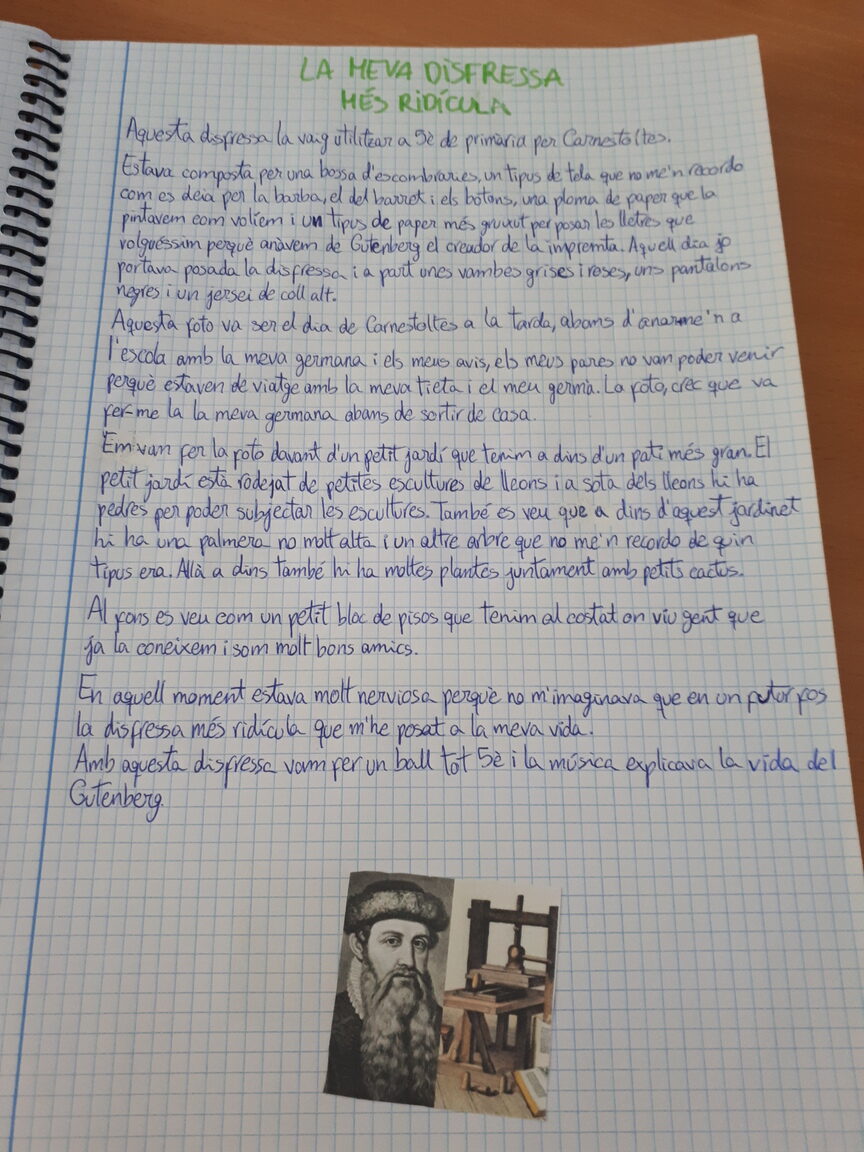 LA MEVA DISFRESSA
MÉS RIDÍCULA
Aquesta disfressa la vaig utilitzar a 5è de primària per Carnestoltes.
Estava composta per una bossa d'escombraries, un tipus de tela que no me'n recordo
com es deia per la barba, el del barret i els botons, una ploma de paper que la
pintavem com volíem i un tipus de paper més gruixut per posar les lletres que
volguéssim perquè anàvem de Gutenberg el creador de la impremta. Aquell dia jo
portava posada la disfressa i a part unes vambes grises i roses, uns pantalons
negres i un jersei de coll alt.
Aquesta foto va ser el dia de Carnestoltes a la tarda, abans d'anarme'n a
l'escola amb la meva germana i els meus avis, els meus pares no van poder venir
perquè estaven de viatge amb la meva tieta i el meu germà. La foto, crec que va
fer-me la la meva germana abans de sortir de casa.
Em van fer la foto davant d'un petit jardí que tenim a dins d'un pati més gran. El
petit jardí està rodejat de petites escultures de lleons i a sota dels lleons hi ha
pedres per poder subjectar les escultures. També es veu que a dins d'aquest jardinet
hi ha una palmera no molt alta i un altre arbre que no me'n recordo de quin
tipus era. Allà a dins també hi ha moltes plantes juntament amb petits cactus.
Al fons es veu com un petit bloc de pisos que tenim al costat on viu gent que
ja la coneixem i som molt bons amics.
En aquell moment estava molt nerviosa perquè no m'imaginava que en un futur fos
la disfressa més ridícula que m'he posat a la meva vida.
Amb aquesta disfressa vam fer un ball tot 5è i la música explicava la vida del
Gutenberg.